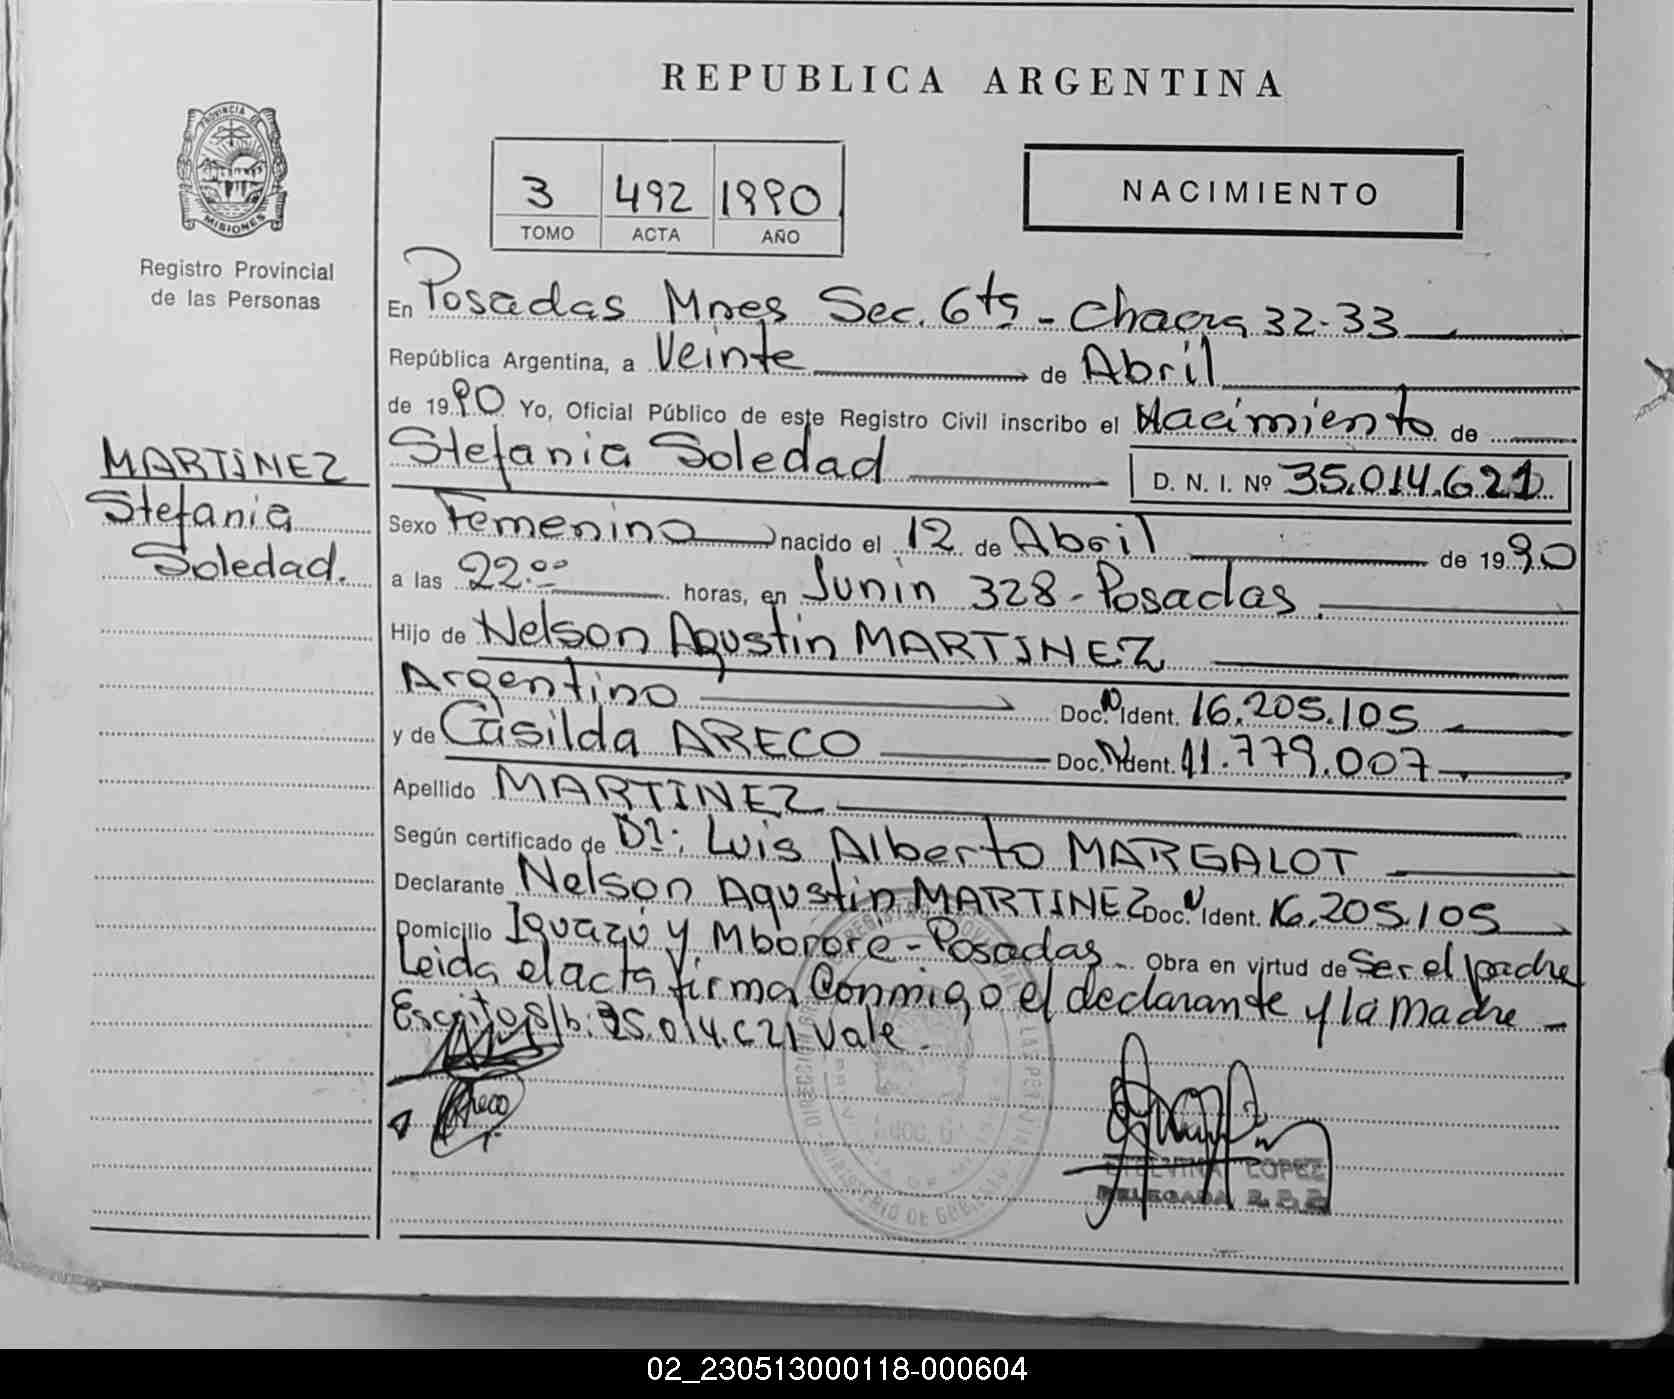 REPUBLICA ARGENTINA
PROVINCIA DE
MISIONES
Registro Provincial
de las Personas
3 492 1990
TOMO ACTA AÑO
NACIMIENTO
En Posadas Mnes Sec. 6ta - Chacra 32-33
República Argentina, a Veinte de Abril
de 1990 Yo, Oficial Público de este Registro Civil inscribo el Nacimiento de
Stefania Soledad D. N. I. Nº 35.014.621
MARTINEZ
Stefania
Soledad.
Sexo Femenino nacido el 12 de Abril de 1990
a las 22.00 horas, en Junin 328 - Posadas
Hijo de Nelson Agustin MARTINEZ
Argentino Doc. Ident. 16.205.105
y de Casilda ARECO Doc. Ident. 11.779.007
Apellido MARTINEZ
Según certificado de Dr: Luis Alberto MARGALOT
Declarante Nelson Agustin MARTINEZ Doc. Ident. 16.205.105
Domicilio Iguazú y Mborore - Posadas Obra en virtud de Ser el padre
Leida el acta firma Conmigo el declarante y la madre
Escrito s/b: 35.014.621 Vale.
Areco
LOPEZ
DELEGADA
02_230513000118-000604